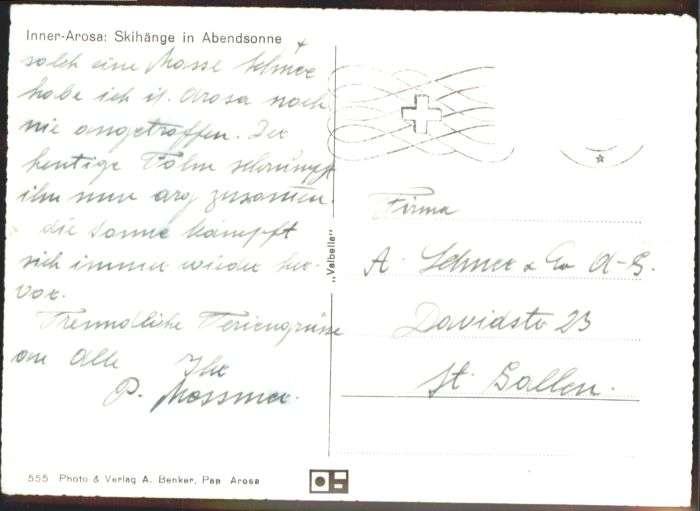 Inner-Arosa: Skihänge in Abendsonne
solch eine Masse Schnee
habe ich in Arosa noch
nie angetroffen. Der
heutige Föhn schrumpft
ihn nun arg zusammen.
die Sonne kämpft
sich immer wieder her-
vor.
Freundliche Feriengrüsse
an Alle Ihr
P.
„Valbella"
Firma
A. & Co A-G.
Davidstr 23
St. Gallen.
555 Photo & Verlag A. Benker, Pan Arosa